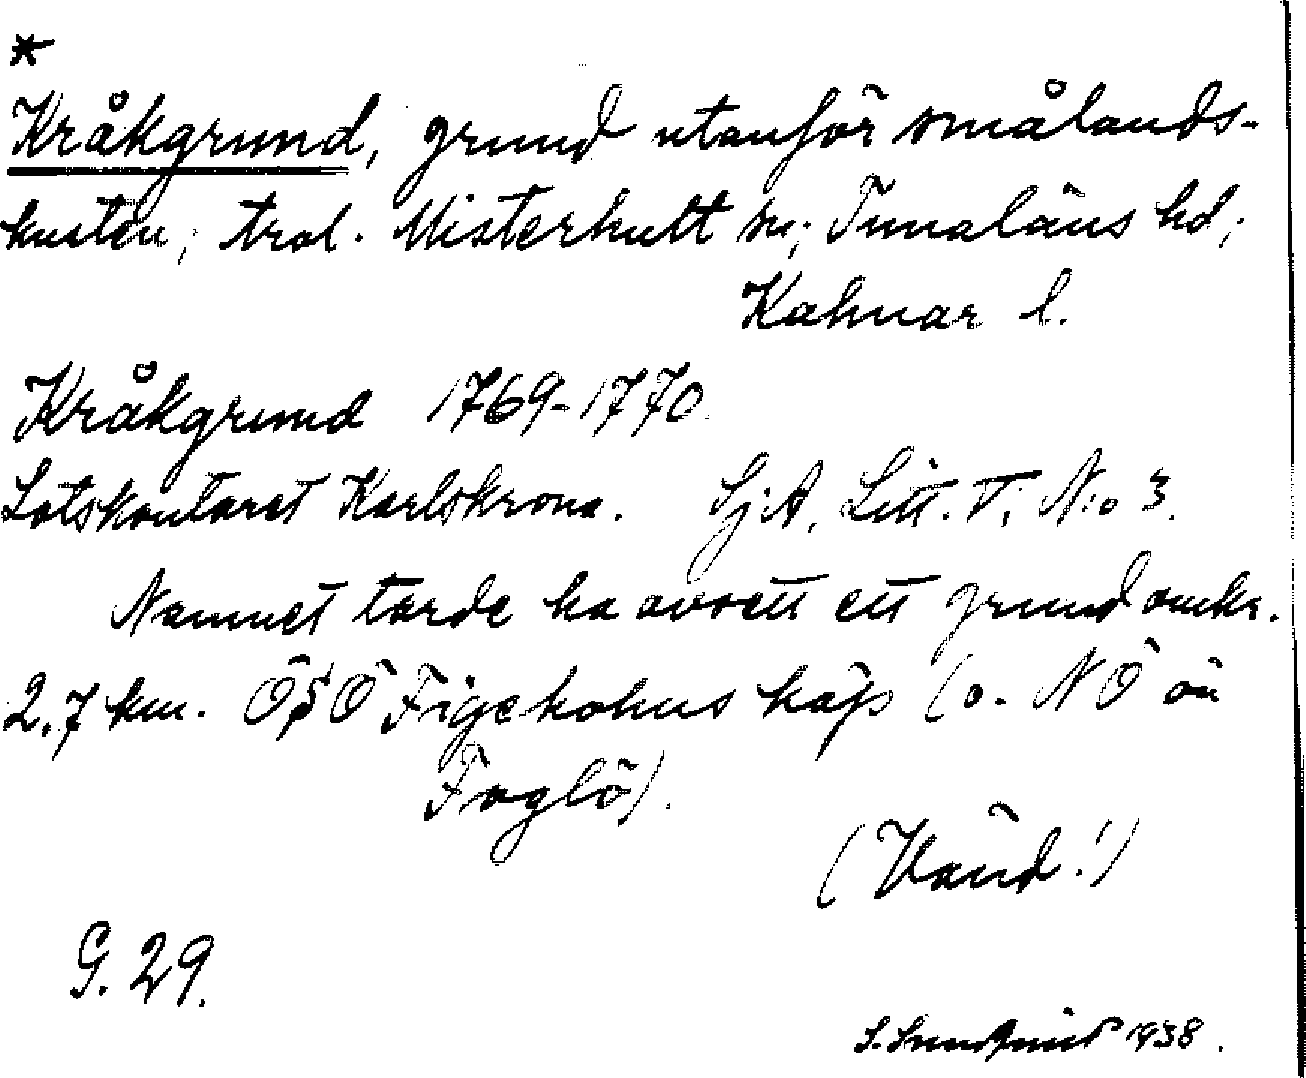 *
Kråkgrund, grund utanför smålands-
kusten, trol. Misterhult sn; Tunaläns hd;
Kalmar l.
Kråkgrund 1769-1770.
Lotskontoret Karlskrona. SjA, Litt. T; N:o 3.
Namnet torde ha avsett ett grund omkr.
2,7 km. ÖSÖ Figeholms käp (o. NÖ ön
Foglö).
(Vänd!)
G. 29.
S. Sundqvist 1938.